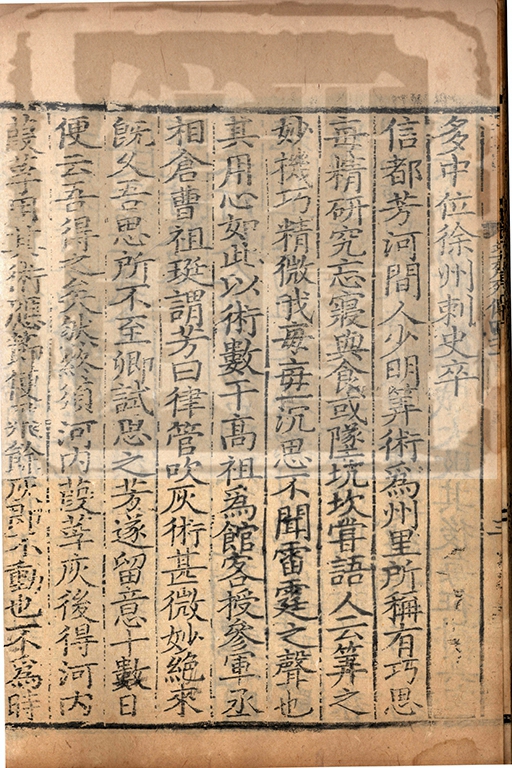 多中位徐州刺史卒
信都芳河間人少明筭術爲州里所稱有巧思
每精研究忘寢與食或墜坑坎嘗語人云筭之
妙機巧精微我每一沉思不聞雷霆之聲也
其用心如此以術數干高祖爲館客授參軍丞
相倉曹祖珽謂芳曰律管吹灰術甚微妙絕來
旣久吾思所不至卿試思之芳遂留意十數日
便云吾得之矣然終須河內葭莩灰後得河內
葭莩用其術應節便飛餘灰即不動也不爲時